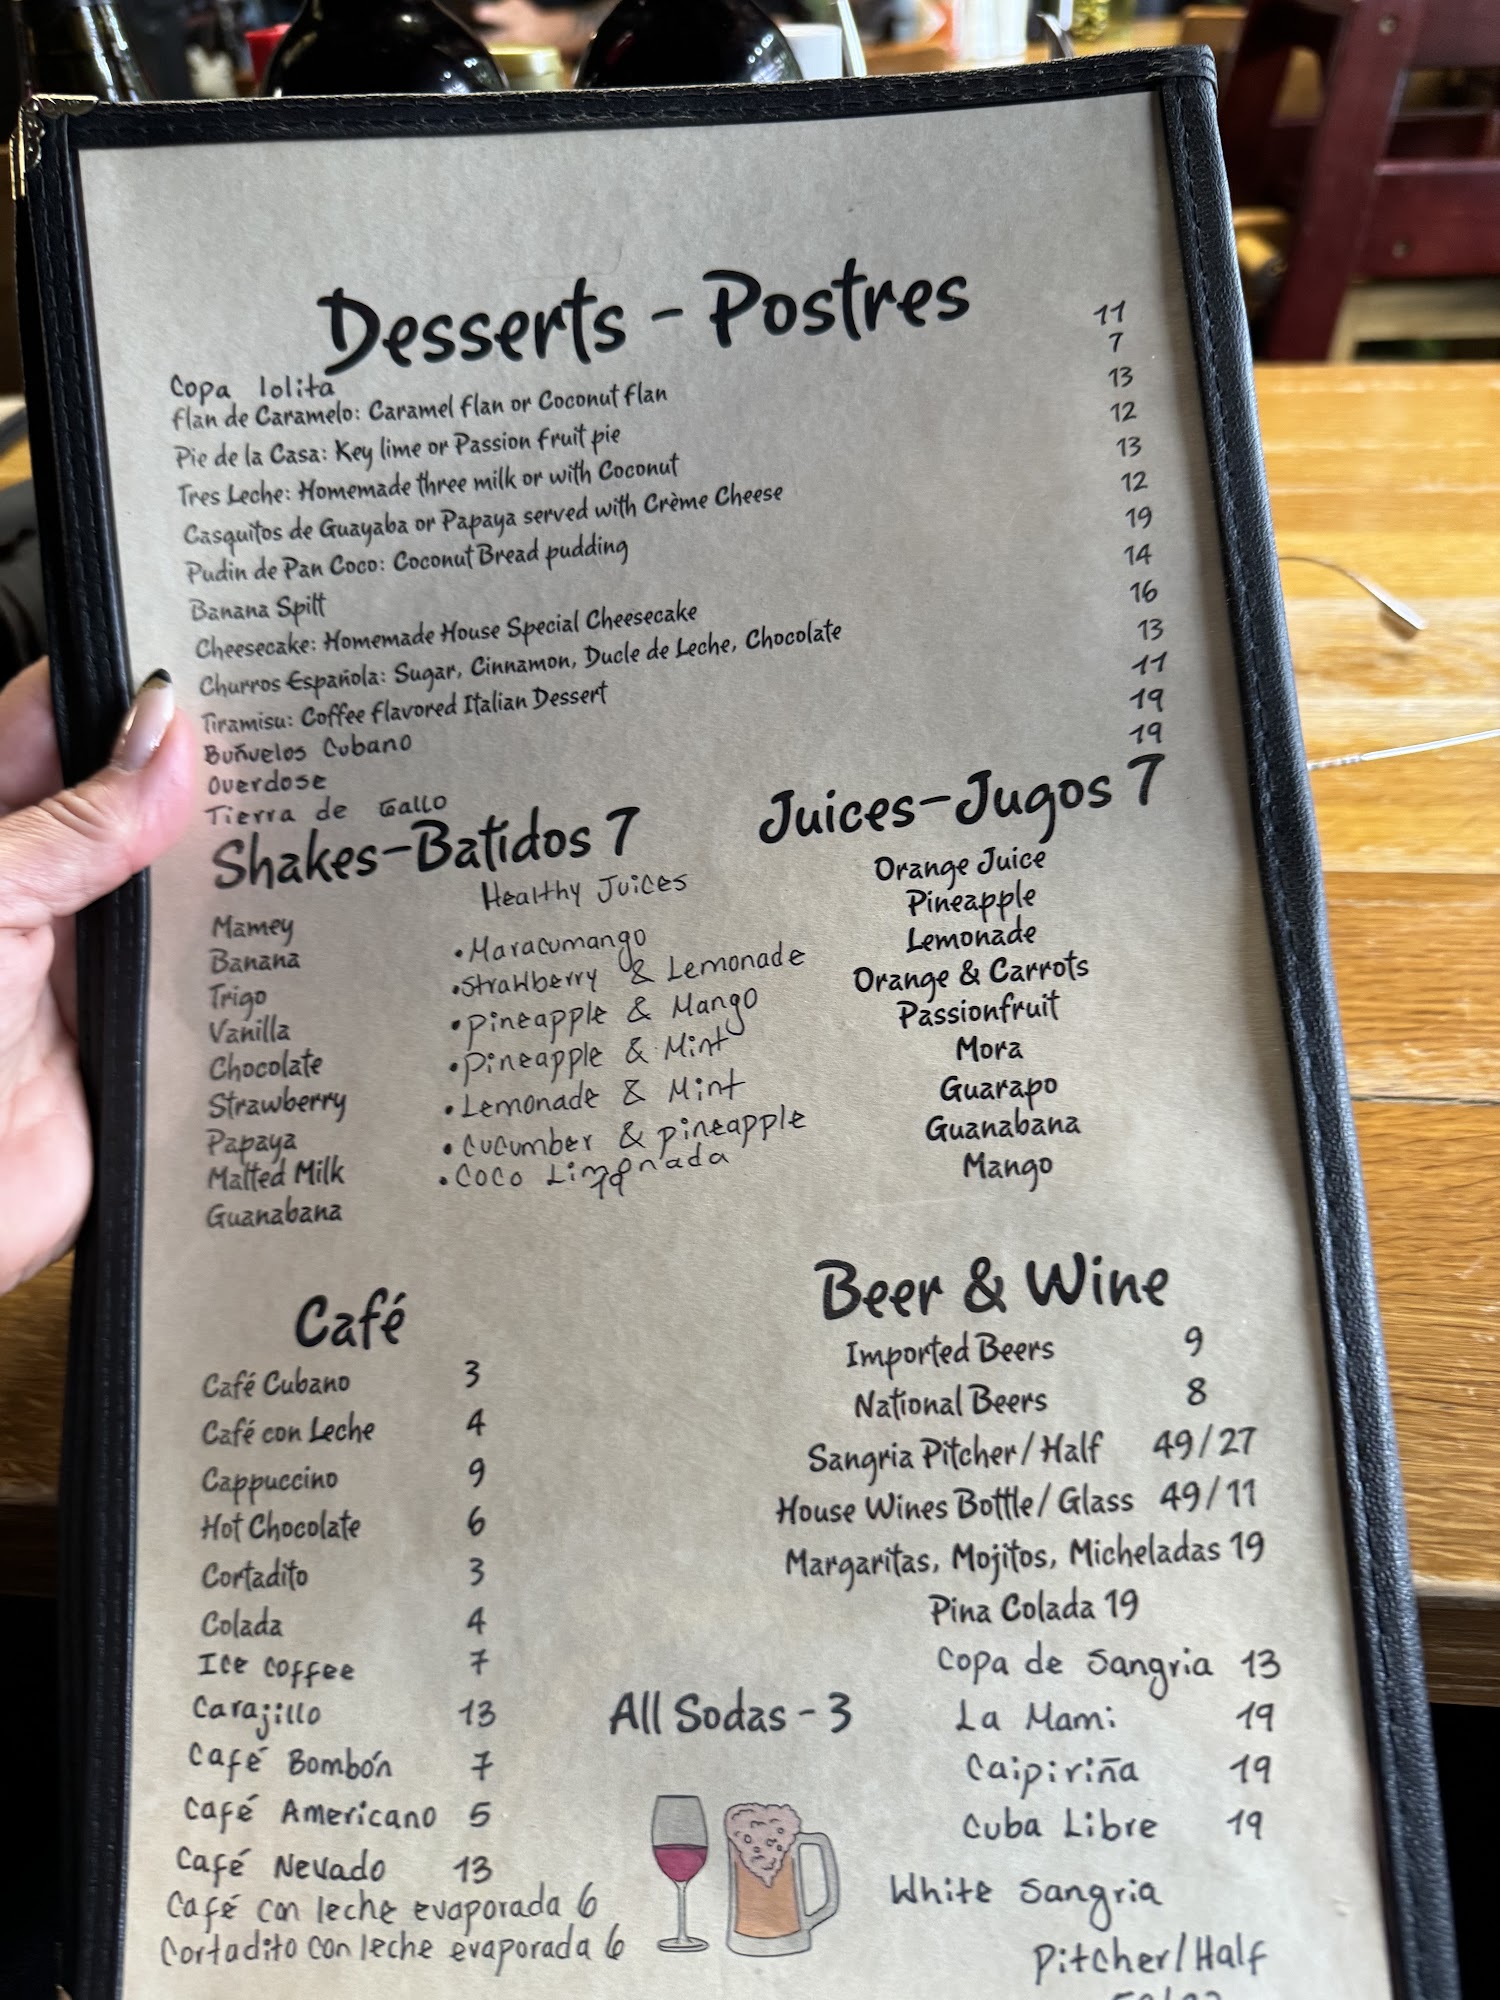 Desserts - Postres
Copa lolita 11
Flan de Caramelo: Caramel Flan or Coconut Flan 7
Pie de la Casa: Key lime or Passion Fruit pie 13
Tres Leche: Homemade three milk or with Coconut 12
Casquitos de Guayaba or Papaya served with Crème Cheese 13
Pudin de Pan Coco: Coconut Bread pudding 12
Banana Spilt 19
Cheesecake: Homemade House Special Cheesecake 14
Churros Española: Sugar, Cinnamon, Ducle de Leche, Chocolate 16
Tiramisu: Coffee Flavored Italian Dessert 13
Buñuelos Cubano 11
Overdose 19
Tierra de Gallo 19
Shakes-Batidos 7
Mamey
Banana
Trigo
Vanilla
Chocolate
Strawberry
Papaya
Malted Milk
Guanabana
Healthy Juices
• Maracumango
• Strawberry & Lemonade
• Pineapple & Mango
• Pineapple & Mint
• Lemonade & Mint
• Cucumber & pineapple
• Coco Limonada
19
Juices-Jugos 7
Orange Juice
Pineapple
Lemonade
Orange & Carrots
Passionfruit
Mora
Guarapo
Guanabana
Mango
Café
Café Cubano 3
Café con Leche 4
Cappuccino 9
Hot Chocolate 6
Cortadito 3
Colada 4
Ice coffee 7
Carajillo 13
Café Bombón 7
Café Americano 5
Café Nevado 13
Café con leche evaporada 6
Cortadito con leche evaporada 6
All Sodas - 3
Beer & Wine
Imported Beers 9
National Beers 8
Sangria Pitcher/Half 49/27
House Wines Bottle/Glass 49/11
Margaritas, Mojitos, Micheladas 19
Pina Colada 19
Copa de Sangria 13
La Mami 19
Caipiriña 19
Cuba Libre 19
White Sangria
Pitcher/Half